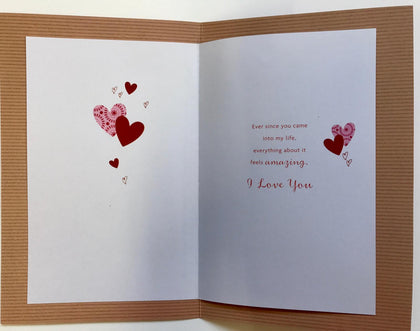 Ever since you came
into my life,
everything about it
feels amazing.
I Love You